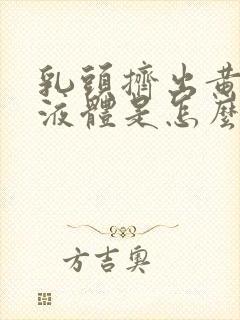 乳頭擠出黃
液體是怎麼
方吉奧